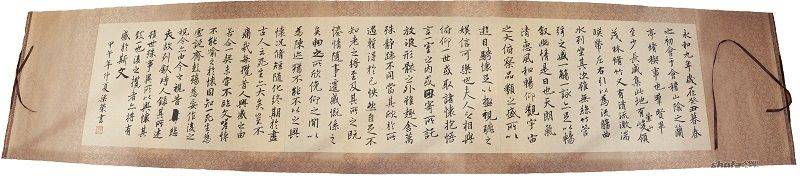 永和九年歲在癸丑暮春
之初會于會稽山陰之蘭
亭脩稧事也羣賢畢
至少長咸集此地有崇山峻領
茂林脩竹又有清流激湍
映帶左右引以為流觴曲
水列坐其次雖無絲竹管
弦之盛一觴一詠亦足以暢
敘幽情是日也天朗氣
清惠風和暢仰觀宇宙
之大俯察品類之盛所以
遊目騁懷足以極視聽之
娛信可樂也夫人之相與
俯仰一世或取諸懷抱悟
言一室之內或因寄所託
放浪形骸之外雖趣舍萬
殊靜躁不同當其欣於所
遇蹔得於己怏然自足不
知老之將至及其所之既
惓情隨事遷感慨係之
矣向之所欣俛仰之間以
為陳迹猶不能不以之興
懷況脩短隨化終期於盡
古人云死生亦大矣豈不
痛哉每攬昔人興感之由
若合一契未嘗不臨文嗟悼
不能喻之於懷固知一死生為
虛誕齊彭殤為妄作後之
視今亦由今之視昔悲
夫故列敘時人錄其所述
雖世殊事異所以興懷其
致一也後之攬者亦將有
感於斯文
甲午年仲夏梁榮書